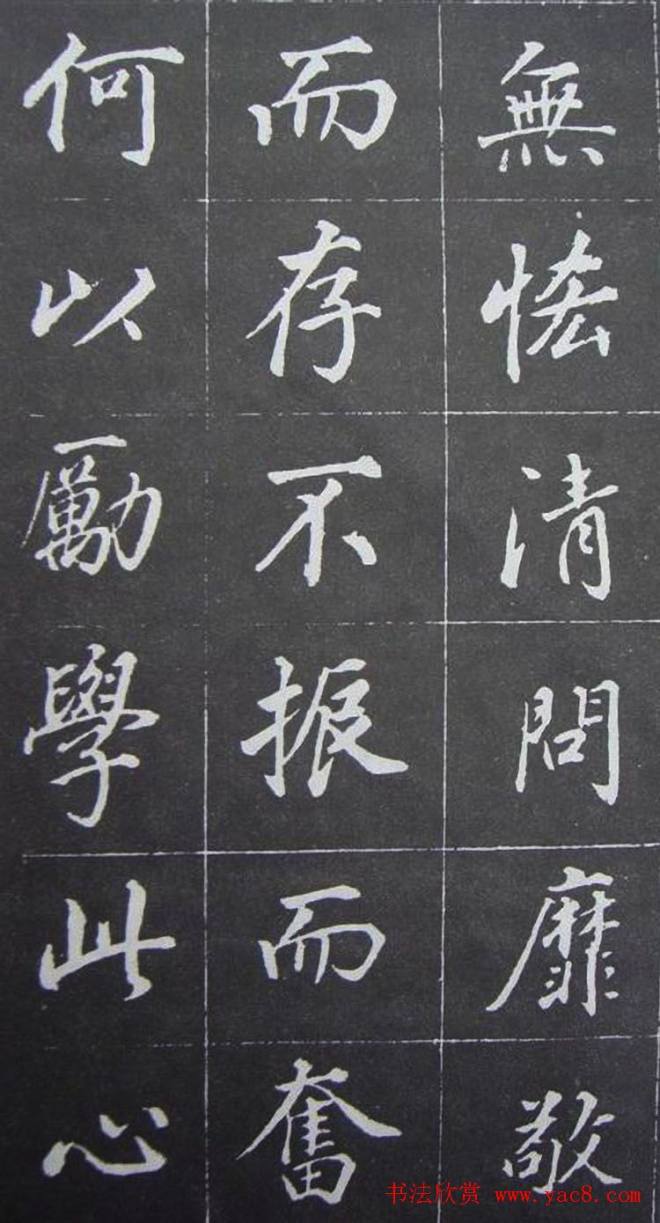 無恡清問靡敢
而存不振而奮
何以勵學此心
书法欣赏 www.yac8.com